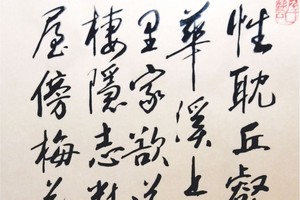 性耽丘壑
華溪上
里家欲
棲隱志
屋傍梅花